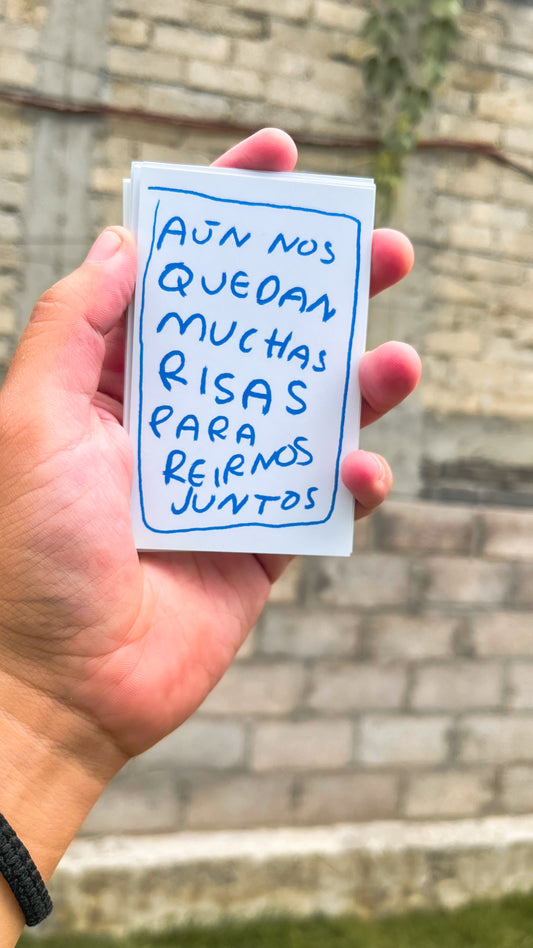 AÚN NOS
QUEDAN
MUCHAS
RISAS
PARA
REIRNOS
JUNTOS